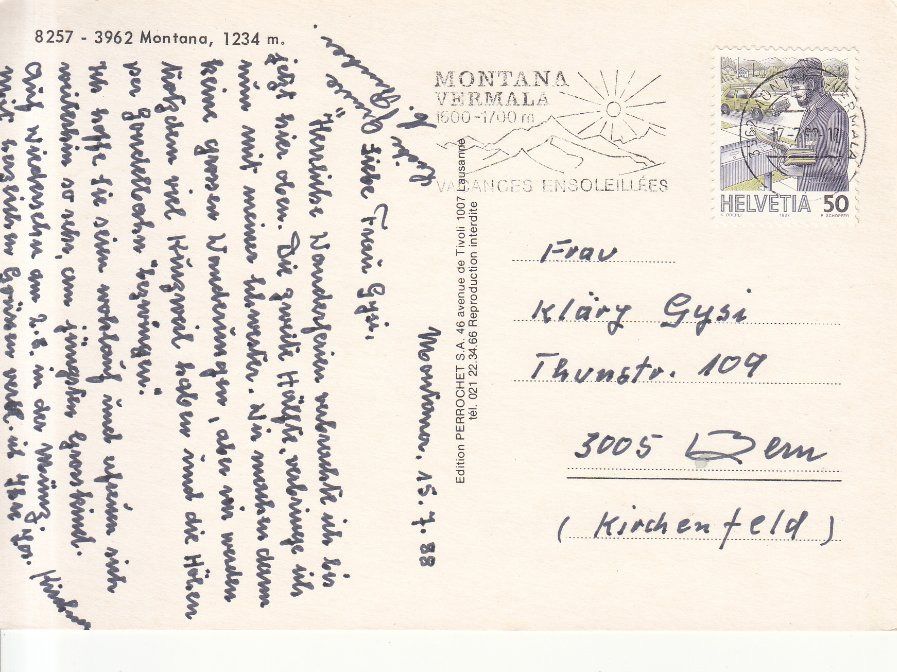 8257 - 3962 Montana, 1234 m.
MONTANA
VERMALA
1500-1700 m
VACANCES ENSOLEILLÉES
HELVETIA 50
Edition PERROCHET S.A. 46 avenue de Tivoli 1007 Lausanne
tél. 021 22.34.66 Reproduction interdite
Montana, 15.7.88
Liebe Frau Gysi,
Herrliche Wanderferien verbrachte ich bis
jetzt hier oben. Die zweite Hälfte verbringe ich
nun mit meiner Schwester. Wir machen dann
keine grossen Wanderungen, aber wir werden
trotzdem viel Kurzweil haben und die Höhen
per Gondelbahn "bezwingen".
Ich hoffe Sie seien wohlauf und erfreuen sich
weiterhin so sehr am jüngsten Grosskind.
Auf Wiedersehn am 2.8. in der
mit herzlichen Grüssen
Frau
Kläry Gysi
Thunstr. 109
3005 Bern
(Kirchenfeld)